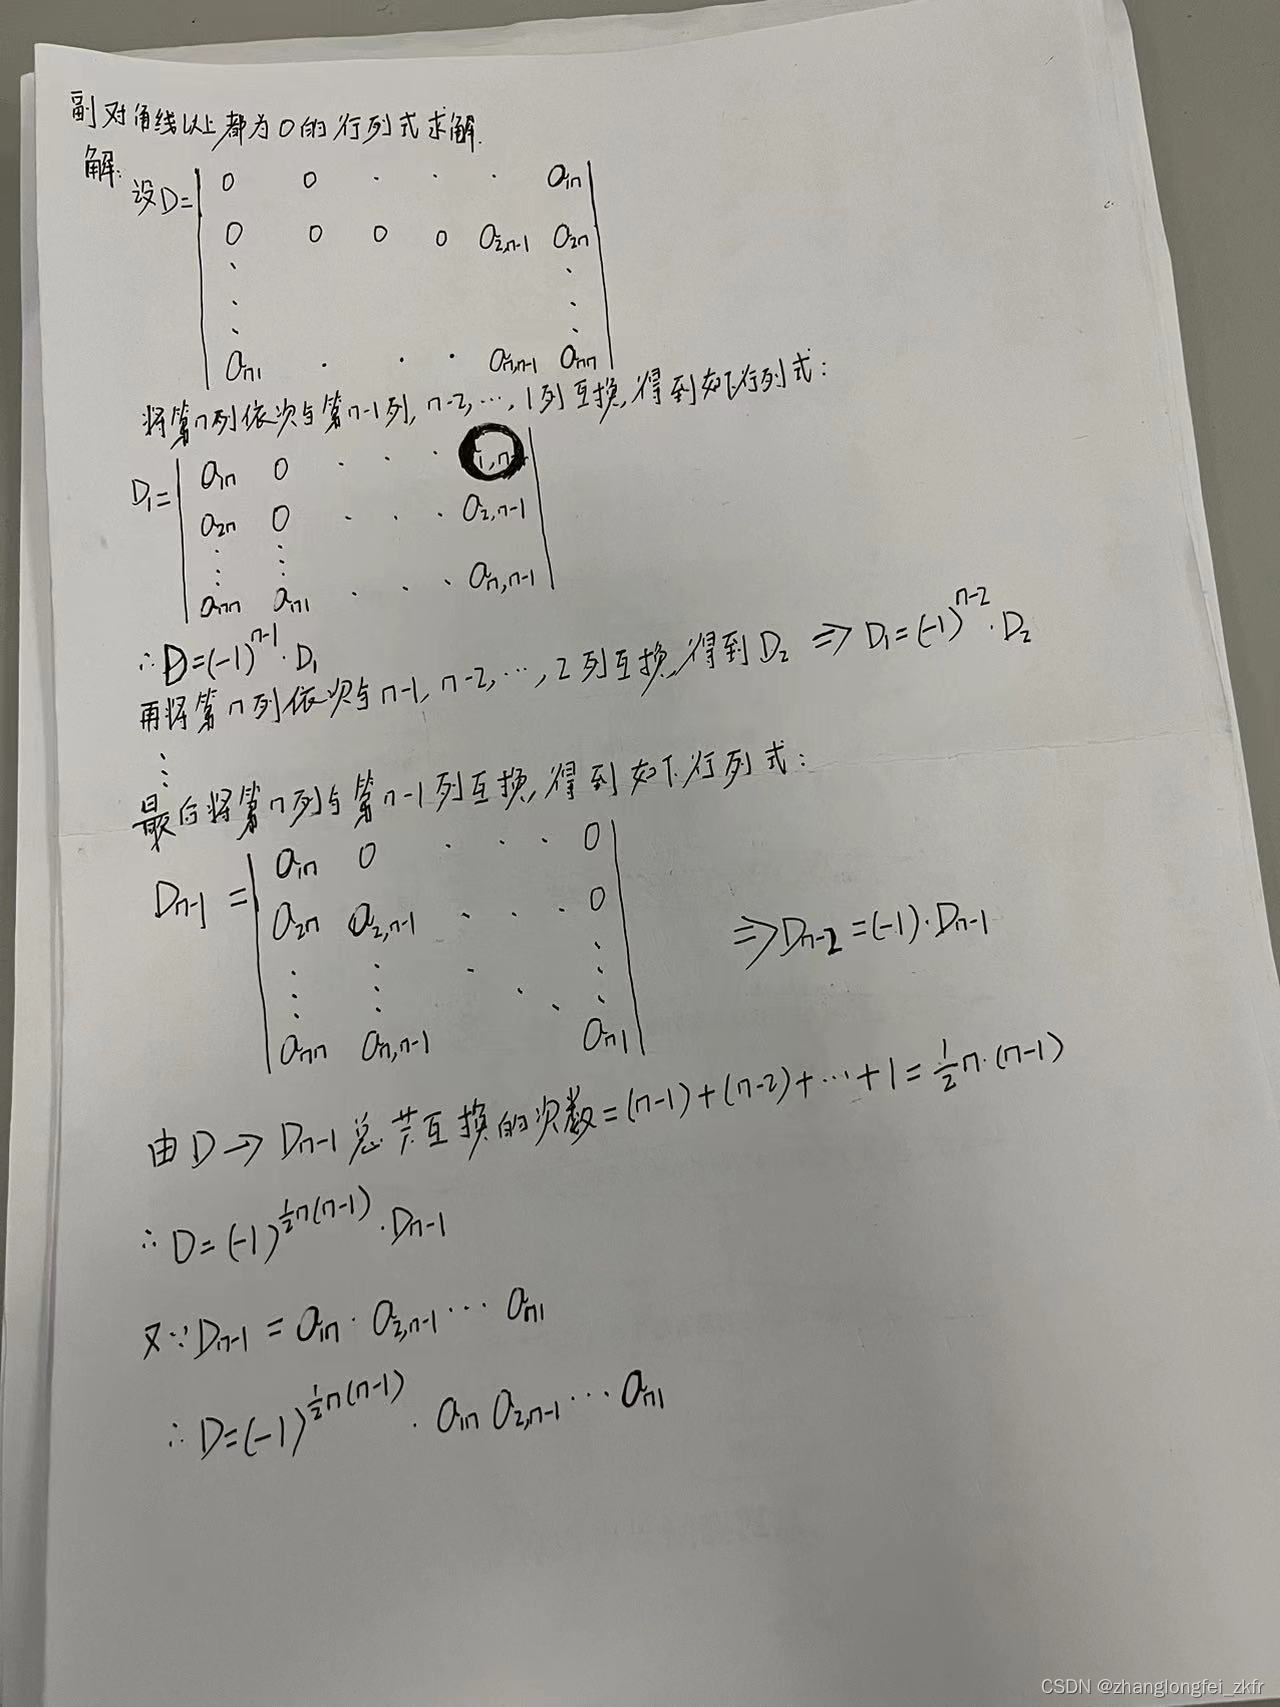 副对角线以上都为0的行列式求解.
解:
设D= | 0 0 · · · a1n |
0 0 0 0 a2,n-1 a2n
· ·
· ·
· ·
an1 · · · an,n-1 ann
将第n列依次与第n-1列, n-2, ···, 1列互换, 得到如下行列式:
D1= | a1n 0 · · · |
a2n 0 · · · a2,n-1
⋮ ⋮
ann an1 · · · an,n-1
∴D=(-1)^n-1 · D1
再将第n列依次与n-1, n-2, ···, 2列互换, 得到D2 ⇒ D1=(-1)^n-2 · D2
⋮
最后将第n列与第n-1列互换, 得到如下行列式:
Dn-1 = | a1n 0 · · · 0 |
a2n a2,n-1 · · · 0
⋮ ⋮ · · · ⋮
ann an,n-1 an1
⇒Dn-2=(-1)·Dn-1
由D→Dn-1总共互换的次数=(n-1)+(n-2)+···+1=1/2 n·(n-1)
∴D=(-1)^1/2 n(n-1) · Dn-1
又∵Dn-1 = a1n · a2,n-1 ··· an1
∴D=(-1)^1/2 n(n-1) · a1n a2,n-1 ··· an1
CSDN @zhanglongfei_zkfr